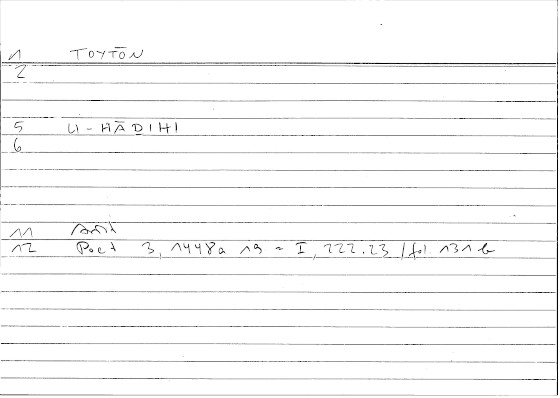 1 TOYTŌN
2
5 LI-HĀDIHI
6
11 Arist
12 Poet 3, 1448a 19 = I, 222.23 / fol 131 b